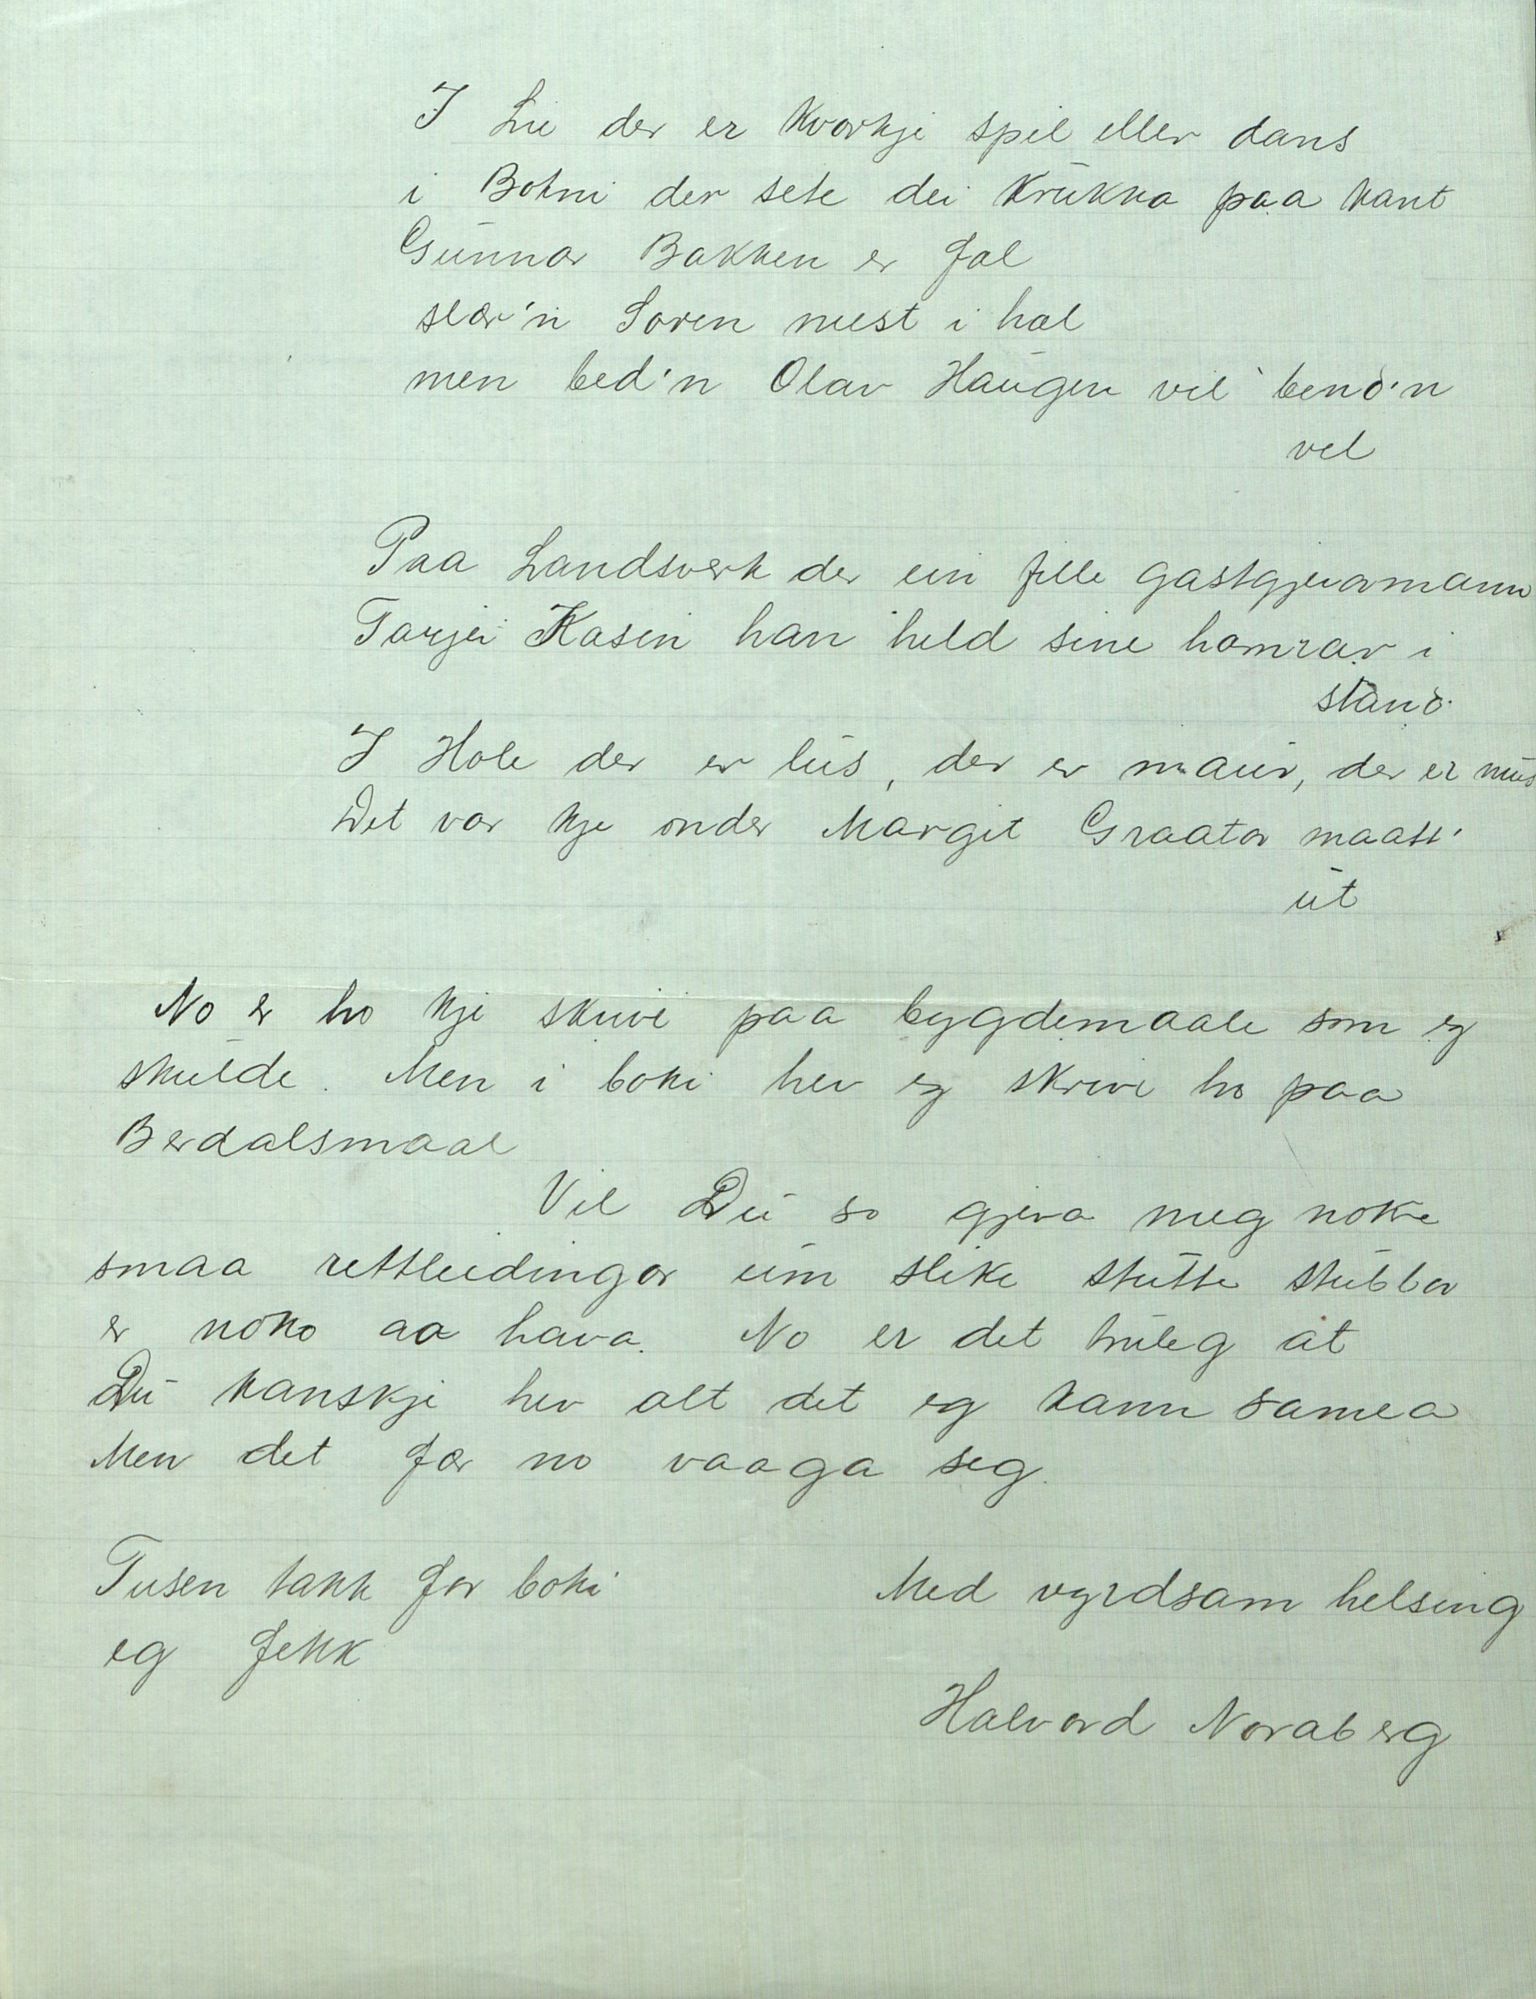 I Lie der er kvorkje spil eller dans
i Botni der sete dei krukka paa kant
Gunnar Bakken er fal
slær'n Soren mest i hæl
men bed'n Olav Haugen vil bend'n
vel
Paa Landsverk der ein fille gastgjevarmann
Tarjei Kasin han held sine hamrar i
stand.
I Hole der er lus, der er maur, der er mus
Det var kje onder Margit Graator maatt'
ut
No er ho kje skrive paa bygdemaale som eg
skulde. Men i boki hev eg skrive ho paa
Berdalsmaal
Vil Du so gjeva meg nokre
smaa rettleidingar um slike stutte stubbar
er noko aa hava. No er det truleg at
Du kanskje hev alt det eg kann samla
Men det fær no vaaga seg.
Tusen takk for boki
eg fekk
Med vyrdsam helsing
Halvord Noraberg